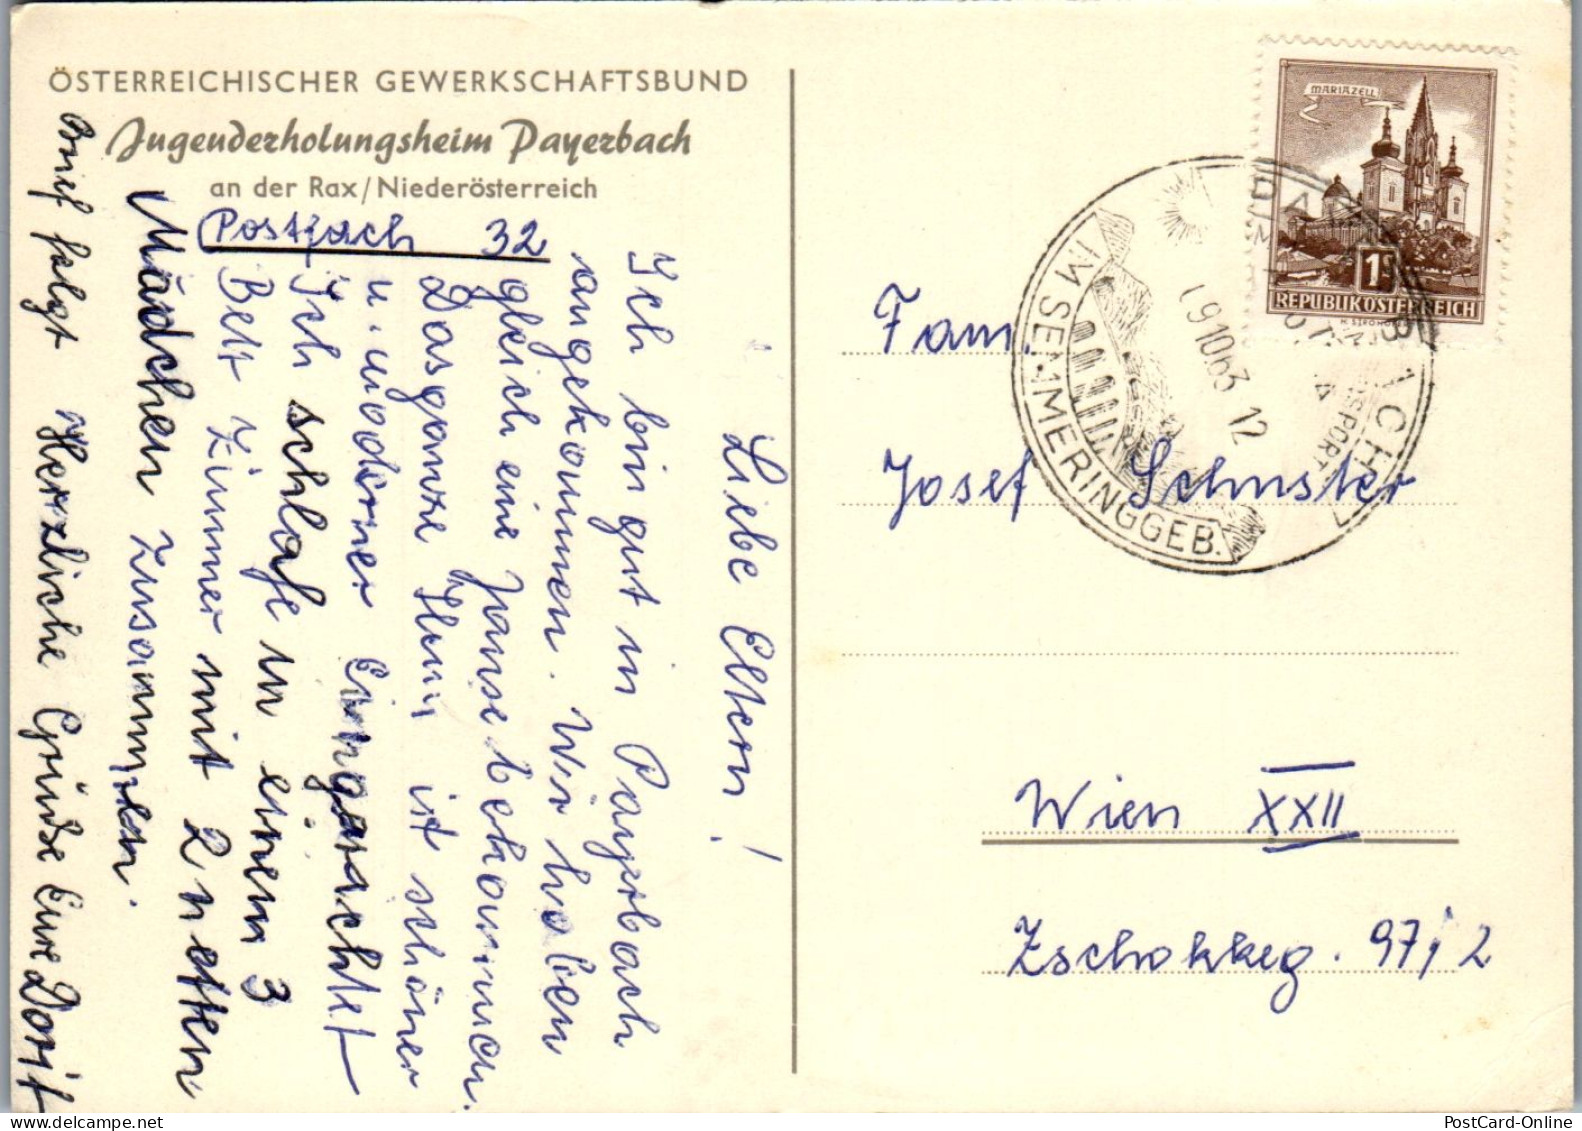 ÖSTERREICHISCHER GEWERKSCHAFTSBUND
Jugenderholungsheim Payerbach
an der Rax/Niederösterreich
Postfach 32
Liebe Eltern!
Ich bin gut in Payerbach
angekommen. Wir haben
gleich eine Jause bekommen.
Das ganze Heim ist schöner
u. moderner Eingerichtet
Ich schlafe in einem 3
Bett Zimmer mit 2 netten
Mädchen Zusammen.
Brief folgt Herzliche Grüße Eure Dorit
MARIAZELL
1S
REPUBLIK ÖSTERREICH
PAYERBACH
IM SEMMERINGGEB.
9 10 63 12
Fam.
Josef Schuster
Wien XXII
Zschokkeg. 97/2
PostCard-Market.net
PostCard-Online